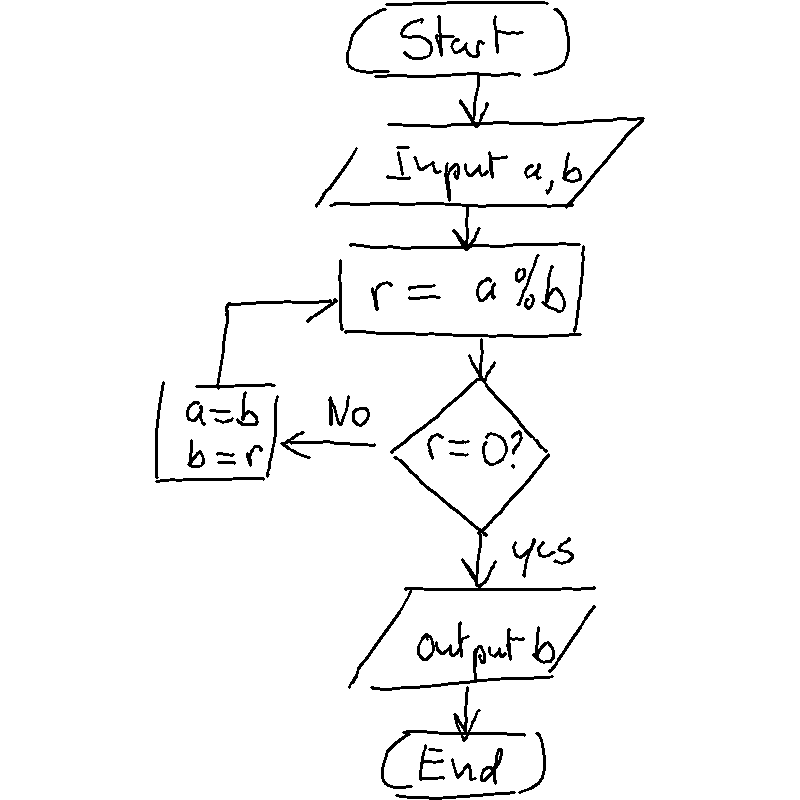 Start
Input a, b
r = a % b
r = 0?
No
a = b
b = r
yes
Output b
End